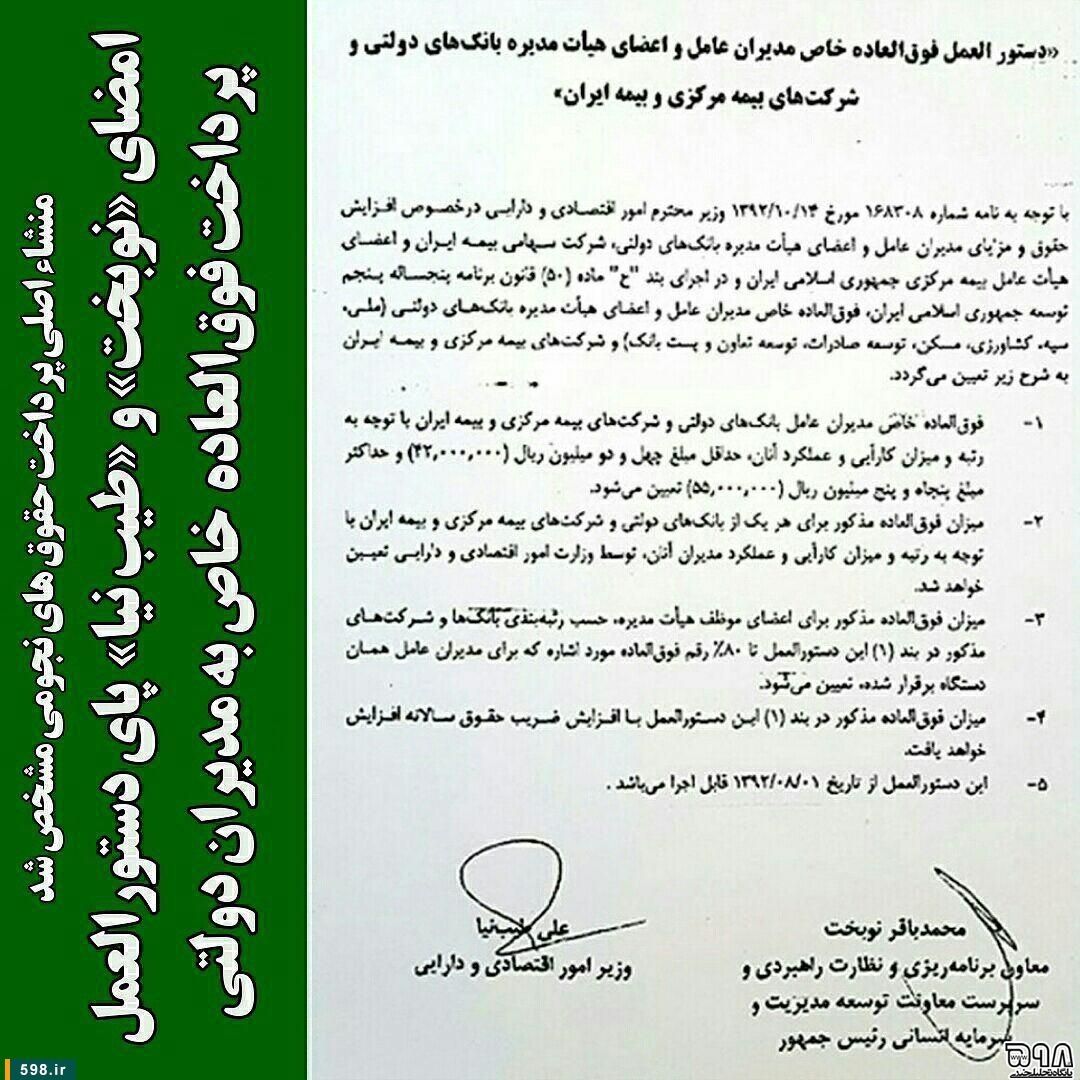 منشاء اصلی پرداخت حقوق های نجومی مشخص شد
امضای «نوبخت» و «طیب نیا» پای دستورالعمل
پرداخت فوق‌العاده خاص به مدیران دولتی
«دستور العمل فوق‌العاده خاص مدیران عامل و اعضای هیأت مدیره بانک‌های دولتی و
شرکت‌های بیمه مرکزی و بیمه ایران»
با توجه به نامه شماره ۱۶۸۳۰۸ مورخ ۱۳۹۲/۱۰/۱۴ وزیر محترم امور اقتصادی و دارایی درخصوص افزایش
حقوق و مزایای مدیران عامل و اعضای هیأت مدیره بانک‌های دولتی، شرکت سهامی بیمه ایران و اعضای
هیأت عامل بیمه مرکزی جمهوری اسلامی ایران و در اجرای بند "ح" ماده (۵۰) قانون برنامه پنجساله پنجم
توسعه جمهوری اسلامی ایران، فوق‌العاده خاص مدیران عامل و اعضای هیأت مدیره بانک‌های دولتی (ملی،
سپه، کشاورزی، مسکن، توسعه صادرات، توسعه تعاون و پست بانک) و شرکت‌های بیمه مرکزی و بیمه ایران
به شرح زیر تعیین می‌گردد.
۱- فوق‌العاده خاص مدیران عامل بانک‌های دولتی و شرکت‌های بیمه مرکزی و بیمه ایران با توجه به
رتبه و میزان کارآیی و عملکرد آنان، حداقل مبلغ چهل و دو میلیون ریال (۴۲,۰۰۰,۰۰۰) و حداکثر
مبلغ پنجاه و پنج میلیون ریال (۵۵,۰۰۰,۰۰۰) تعیین می‌شود.
۲- میزان فوق‌العاده مذکور برای هر یک از بانک‌های دولتی و شرکت‌های بیمه مرکزی و بیمه ایران با
توجه به رتبه و میزان کارآیی و عملکرد مدیران آنان، توسط وزارت امور اقتصادی و دارایی تعیین
خواهد شد.
۳- میزان فوق‌العاده مذکور برای اعضای موظف هیأت مدیره، حسب رتبه‌بندی بانک‌ها و شرکت‌های
مذکور در بند (۱) این دستورالعمل تا ۸۰٪ رقم فوق‌العاده مورد اشاره که برای مدیران عامل همان
دستگاه برقرار شده، تعیین می‌شود.
۴- میزان فوق‌العاده مذکور در بند (۱) این دستورالعمل با افزایش ضریب حقوق سالانه افزایش
خواهد یافت.
۵- این دستورالعمل از تاریخ ۱۳۹۲/۰۸/۰۱ قابل اجرا می‌باشد .
محمدباقر نوبخت
معاون برنامه‌ریزی و نظارت راهبردی و
سرپرست معاونت توسعه مدیریت و
سرمایه انسانی رئیس جمهور
علی طیب‌نیا
وزیر امور اقتصادی و دارایی
598.ir
۵۹۸
www
پایگاه تحلیلی خبری